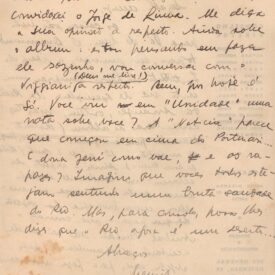 convidarei o Jorge de Lima. Me diga
sua opinião a respeito. Ainda sobre
album: estou pensando em fazer
ele sozinho, vou conversar com o
(Deus me livre!)
a respeito. Bem, por hoje é
só. Você viu em "Unidade" uma
nota sobre você? A "Noticia" parece
que começou em cima do Portinari...
E dona Zeni como vae, e os ra-
pazes? Imagino que vocês todos este-
jam sentindo uma bruta saudade
do Rio. Mas, para consolo posso lhes
dizer que o Rio agora é um deserto...
Abraços